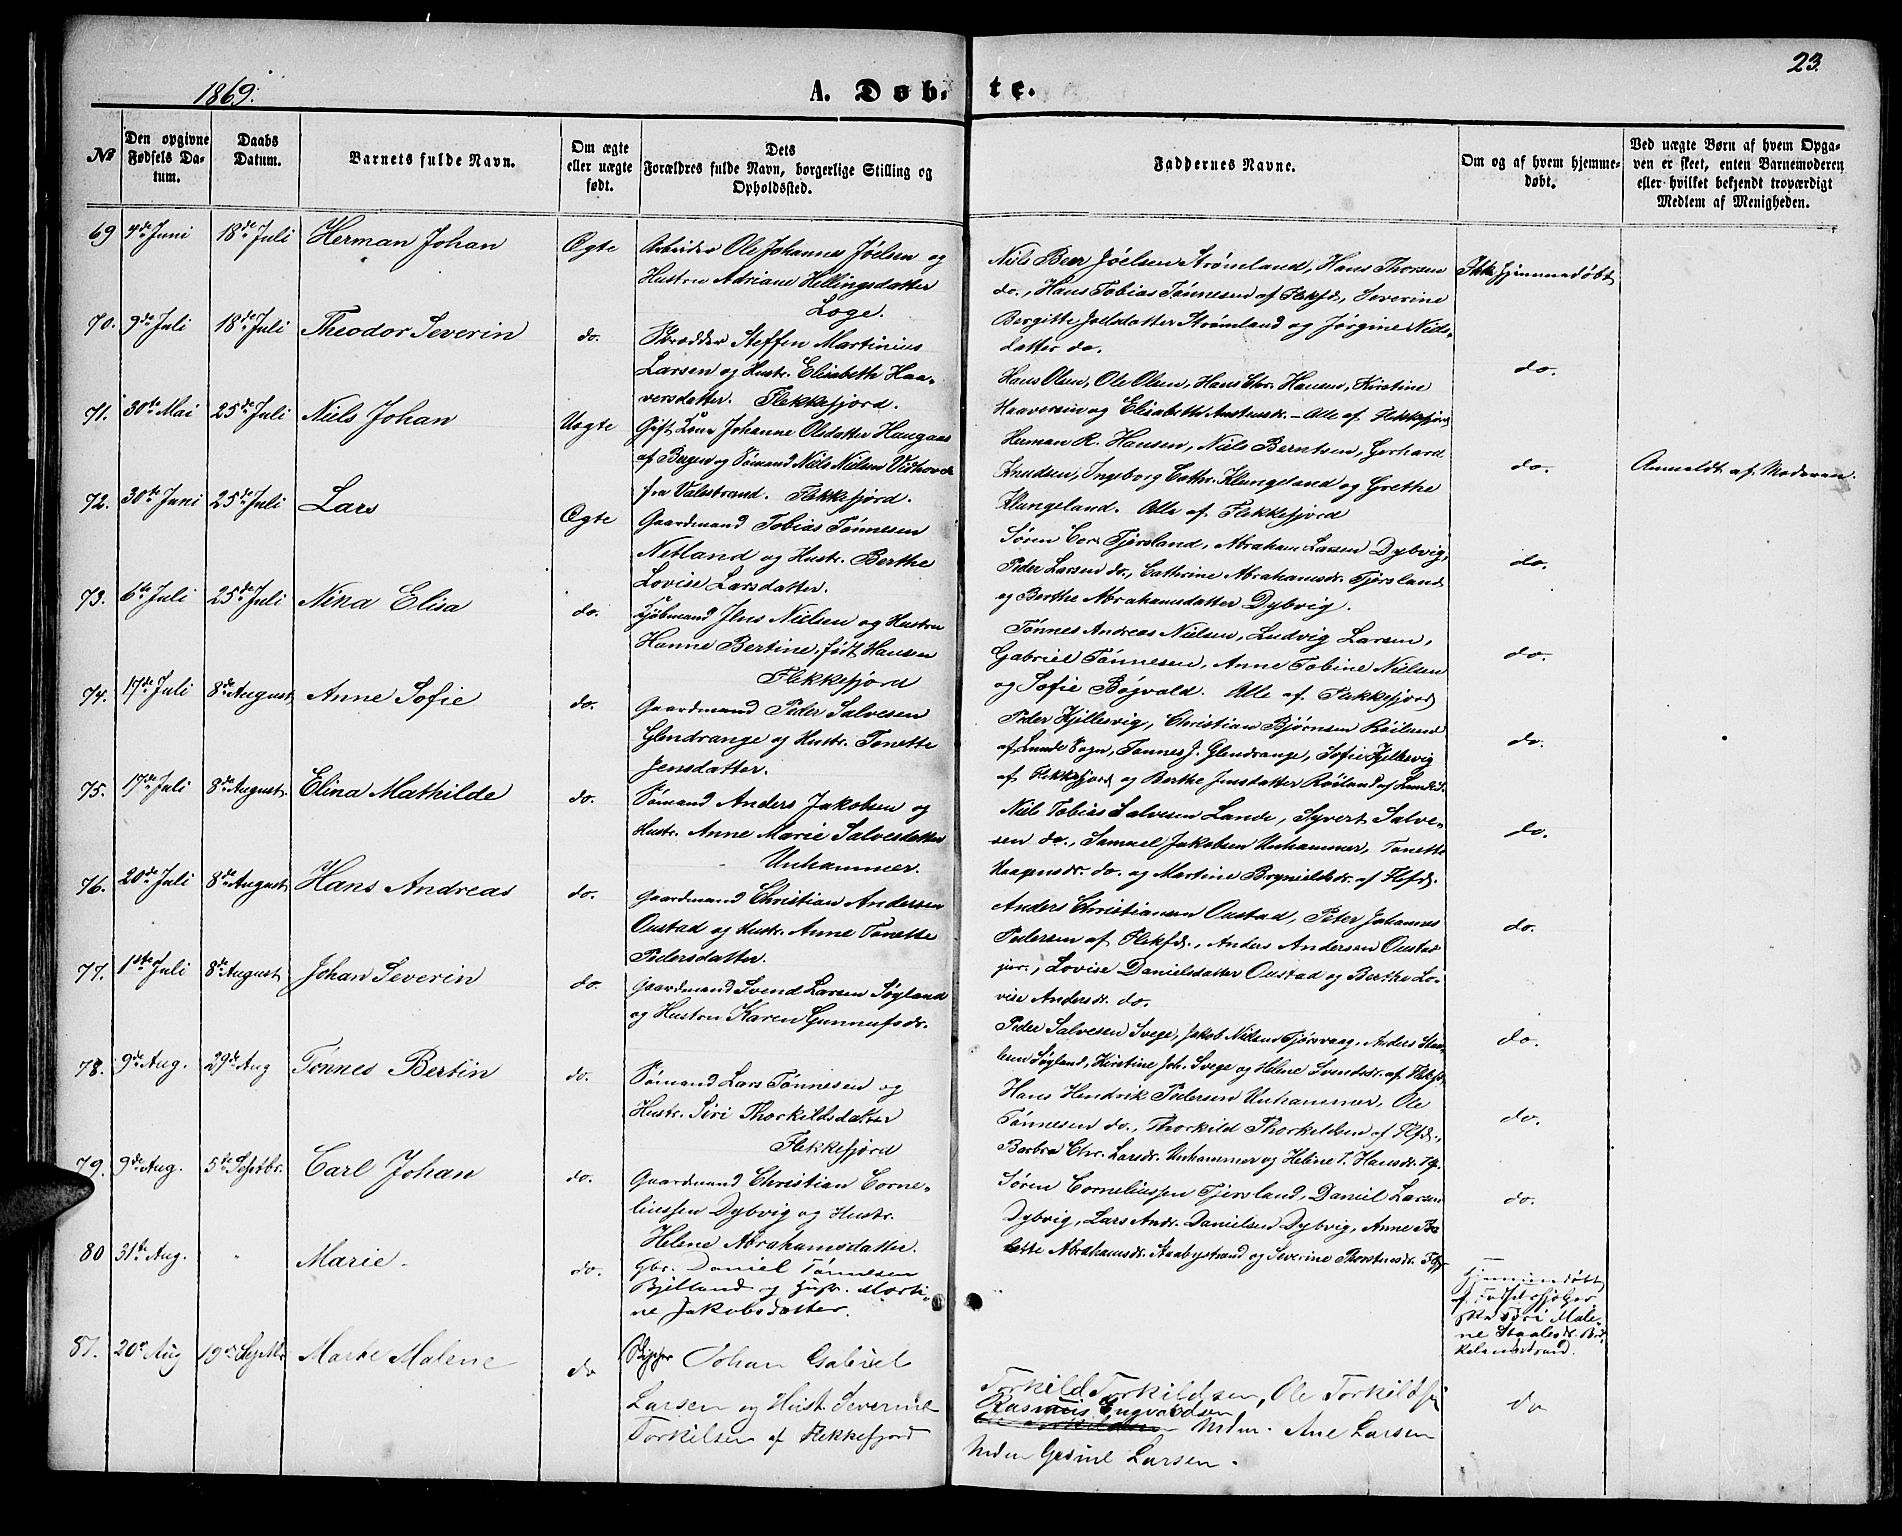 1869.
A. Døb-
te.
23.
No
Den opgivne Fødsels Da-tum.
Daabs Datum.
Barnets fulde Navn.
Om ægte eller uægte født.
Dets Forældres fulde Navn, borgerlige Stilling og Opholdssted.
Faddernes Navne.
Om og af hvem hjemme-døbt.
Ved uægte Børn af hvem Opga-ven er skeet, enten Barnemoderen eller hvilket bekjendt troværdigt Medlem af Menigheden.
69 4de Juni 18de Juli Herman Johan Ægte
Arbeider Ole Johannes Jöelsen og
Hustru Adriane Hellingsdatter
Loge.
Niels Beer Jöelsen Strømland, Hans Thorsen
do., Hans Tobias Tønnesen af Flekfd., Severine
Bergitte Joelsdatter Strømland og Jørgine Niels-
datter do.
Ikke hjemmedøbt
70. 9de Juli 18de Juli Theodor Severin do.
Skrædder Steffen Martinius
Larsen og Hustr. Elisabeth Haa-
versdatter. Flekkefjord.
Hans Olsen, Ole Olsen, Hans Chr. Hansen, Kirstine
Haaversen og Elisabeth - Alle af Flekkefjord
do.
71. 30te Mai 25de Juli Niels Johan Uægte
Gift Kone Johanne Olsdatter Haugaas
af Bergen og Sømand Niels Nielsen Vidhovde
fra Valestrand. Flekkefjord.
Herman R. Hansen, Niels Berntsen, Gerhard
Knudsen, Ingeborg Cathr. Klungeland og Grethe
Klungeland. Alle af Flekkefjord
do.
Anmeldt af Moderen.
72. 30te Juni 25de Juli Lars Ægte
Gaardmand Tobias Tønnesen
Netland og Hustr. Berthe
Lovise Larsdatter.
Søren Cor. Tjørsland, Abraham Larsen Dybvig,
Peder Larsen do., Cathrine Abrahamsdr. Tjørsland
og Berthe Abrahamsdatter Dybvig.
do.
73. 6te Juli 25de Juli Nina Elisa do.
Kjøbmand Jens Nielsen og Hustru
Hanne Bertine, født Hansen
Flekkefjord
Tønnes Andreas Nielsen, Ludvig Larsen,
Gabriel Tønnesen, Anne Tobine Nielsen
og Sofie Bøgvald. Alle af Flekkefjord
do.
74. 17de Juli 8de August Anne Sofie do.
Gaardmand Peder Salvesen
Glendrange og Hustr. Tonette
Jensdatter.
Peder Kjellesvig, Christian Bjørnsen Røiland
af Lunde Sogn, Tønnes J. Glendrange, Sofie Kjellesvig
af Flekkefjord og Berthe Jensdatter Røiland af Lunde S.
do.
75. 17de Juli 8de August Elina Mathilde do.
Sømand Anders Jakobsen og
Hustr. Anne Marie Salvesdatter
Unhammer.
Niels Tobias Salvesen Lande, Syvert Salve-
sen do., Samuel Jakobsen Unhammer, Tonette
Haagensdr. do. og Martine Brynieldsdr. af Flkfd.
do.
76. 20de Juli 8de August Hans Andreas do.
Gaardmand Christian Andersen
Oustad og Hustr. Anne Tonette
Pedersdatter.
Anders Christiansen Oustad, Peter Johannes
Pedersen af Flekfd., Anders Andersen Oustad
jr., Lovise Danielsdatter Oustad og Berthe Lo-
vise Andersdr. do.
do.
77. 1ste Juli 8de August Johan Severin do.
Gaardmand Svend Larsen Søyland
og Hustru Karen Gunnufsdr.
Peder Salvesen Svege, Jakob Nielsen Tjørsvaag, Anders Staa-
lesen Søyland, Kirstine Joh. Svege og Helene Svendsdr. af Flkfd.
do.
78. 9de Aug. 29de Aug Tønnes Bertin do.
Sømand Lars Tønnesen og
Hustr. Siri Thorkildsdatter
Flekkefjord
Hans Hendrik Pedersen Unhammer, Ole
Tønnesen do., Thorkild Thorkildsen af Flfd.,
Barbra Chr. Larsdr. Unhammer og Heline T. Hansdr.
do.
79. 9de Aug. 5te Septbr. Carl Johan do.
Gaardmand Christian Corne-
liussen Dybvig og Hustr.
Helene Abrahamsdatter.
Søren Corneliussen Tjørsland, Daniel Larsen
Dybvig, Lars Andr. Danielsen Dybvig, Anne Bo-
lette Abrahamsdr. Staabystrand og Severine Thorstensdr.
do.
80 31te Aug. " Marie. do.
Gbr. Daniel Tønnesen
Bjelland og Hustr. Marti-
ne Jakobsdatter.
Hjemmedøbt
af Fødselshjelper
ske Siri Male-
ne Staalesdr.
81. 20de Aug 19de Septbr Marte Malene do
Skipper Johan Gabriel
Larsen og Hust. Severine
Torkilsen af Flekkefjord
Torkild Torkildsen, Ole Torkildsen
Rasmus Engvaldsen
Mdm. Ane Larsen
Mdm Gesine Larsen.
do